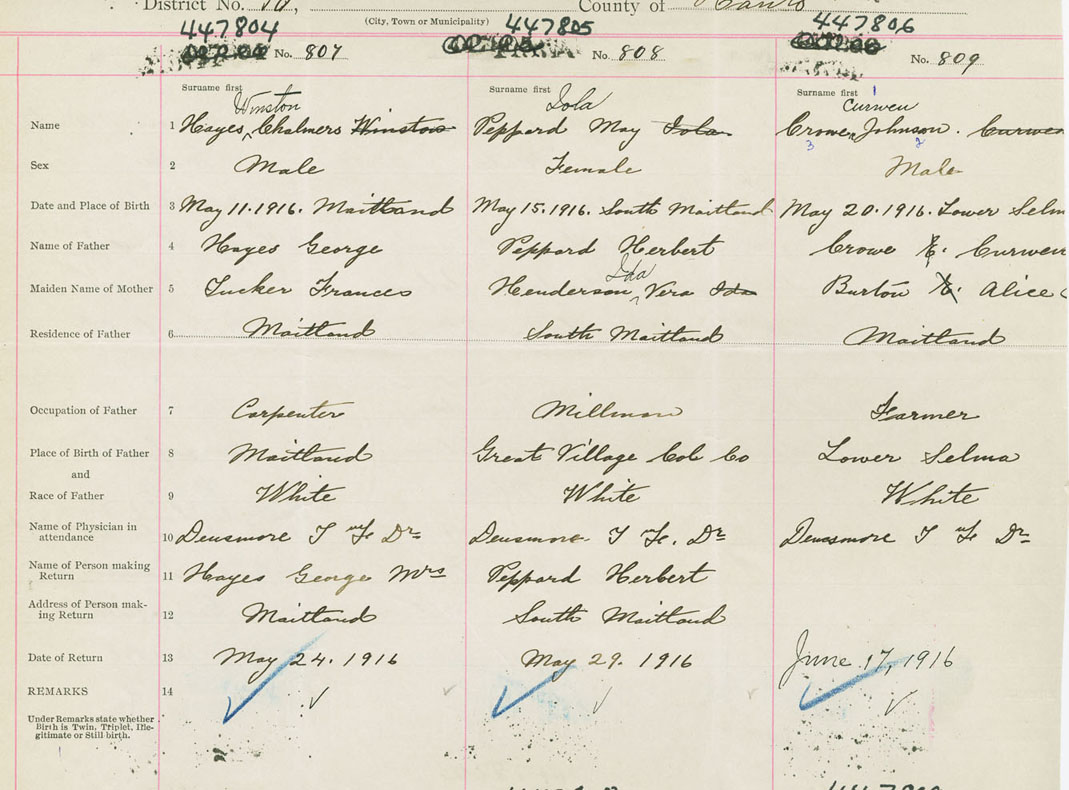 District No. 10, County of Hants
(City, Town or Municipality)
447804 447805 447806
No. 807 No. 808 No. 809
Surname first Surname first Surname first 1
Winston Iola Curwen
Name 1 Hayes, Chalmers Winston Peppard May Iola Crowe, Johnson. Curwen
3 2
Sex 2 Male Female Male
Date and Place of Birth 3 May 11. 1916. Maitland May 15. 1916. South Maitland May 20. 1916. Lower Selm
Name of Father 4 Hayes George Peppard Herbert Crowe E. Curwen
Ida
Maiden Name of Mother 5 Tucker Frances Henderson, Vera Ida Burton Alice
Residence of Father 6 Maitland South Maitland Maitland
Occupation of Father 7 Carpenter Millman Farmer
Place of Birth of Father 8 Maitland Great Village Col Co Lower Selma
and
Race of Father 9 White White White
Name of Physician in
attendance 10 Densmore T W F Dr Densmore T F. Dr Densmore T W F Dr
Name of Person making
Return 11 Hayes George Mrs Peppard Herbert
Address of Person mak-
ing Return 12 Maitland South Maitland
Date of Return 13 May 24. 1916 May 29. 1916 June 17, 1916
REMARKS 14
Under Remarks state whether
Birth is Twin, Triplet, Ille-
gitimate or Still birth.